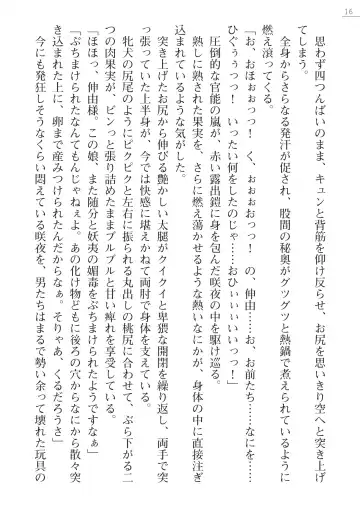 16
思わず四つんばいのまま、キュンと背筋を仰け反らせ、お尻を思いきり空へと突き上げ
てしまう。
全身からさらなる発汗が促され、股間の秘奥がグツグツと熱鍋で煮えられているように
燃え滾ってくる。
「お、おほぉぉっっ！　く、ぉぉぉおっっ！　の、伸由……お、お前たち……なにを……
ひぐぅぅっっ！　いったい何をしたのじゃ……おひぃぃぃいいっっ！」
圧倒的な官能の嵐が、赤い露出鎧に身を包んだ咲夜の中を駆け巡る。
熟しに熟された果実を、さらに燃え蕩かせるような熱いなにかが、身体の中に直接注ぎ
込まれているような気がした。
突き上げたお尻から伸びる艶かしい太腿がクイクイと卑猥な開閉を繰り返し、両手で突
っ張っていた上半身が、今では快感に堪えかねて両肘で身体を支えている。
牝犬の尻尾のようにピクピクと左右に振られる丸出しの桃尻に合わせて、ぶら下がる二
つの肉果実が、ピンッと張り詰めたままプルプルと甘い痺れを享受している。
「ほほっ、伸由様。この娘、また随分と妖夷の媚毒をぶちまけられたようですなぁ」
「ぶちまけられたなんてもんじゃねぇよ。あの化け物どもに後ろの穴からなにから散々突
き込まれた上に、卵まで産みつけられたんだからなぁ。そりゃあ、くるだろうさ」
今にも発狂しそうなくらい悶えている咲夜を、男たちはまるで勢い余って壊れた玩具の